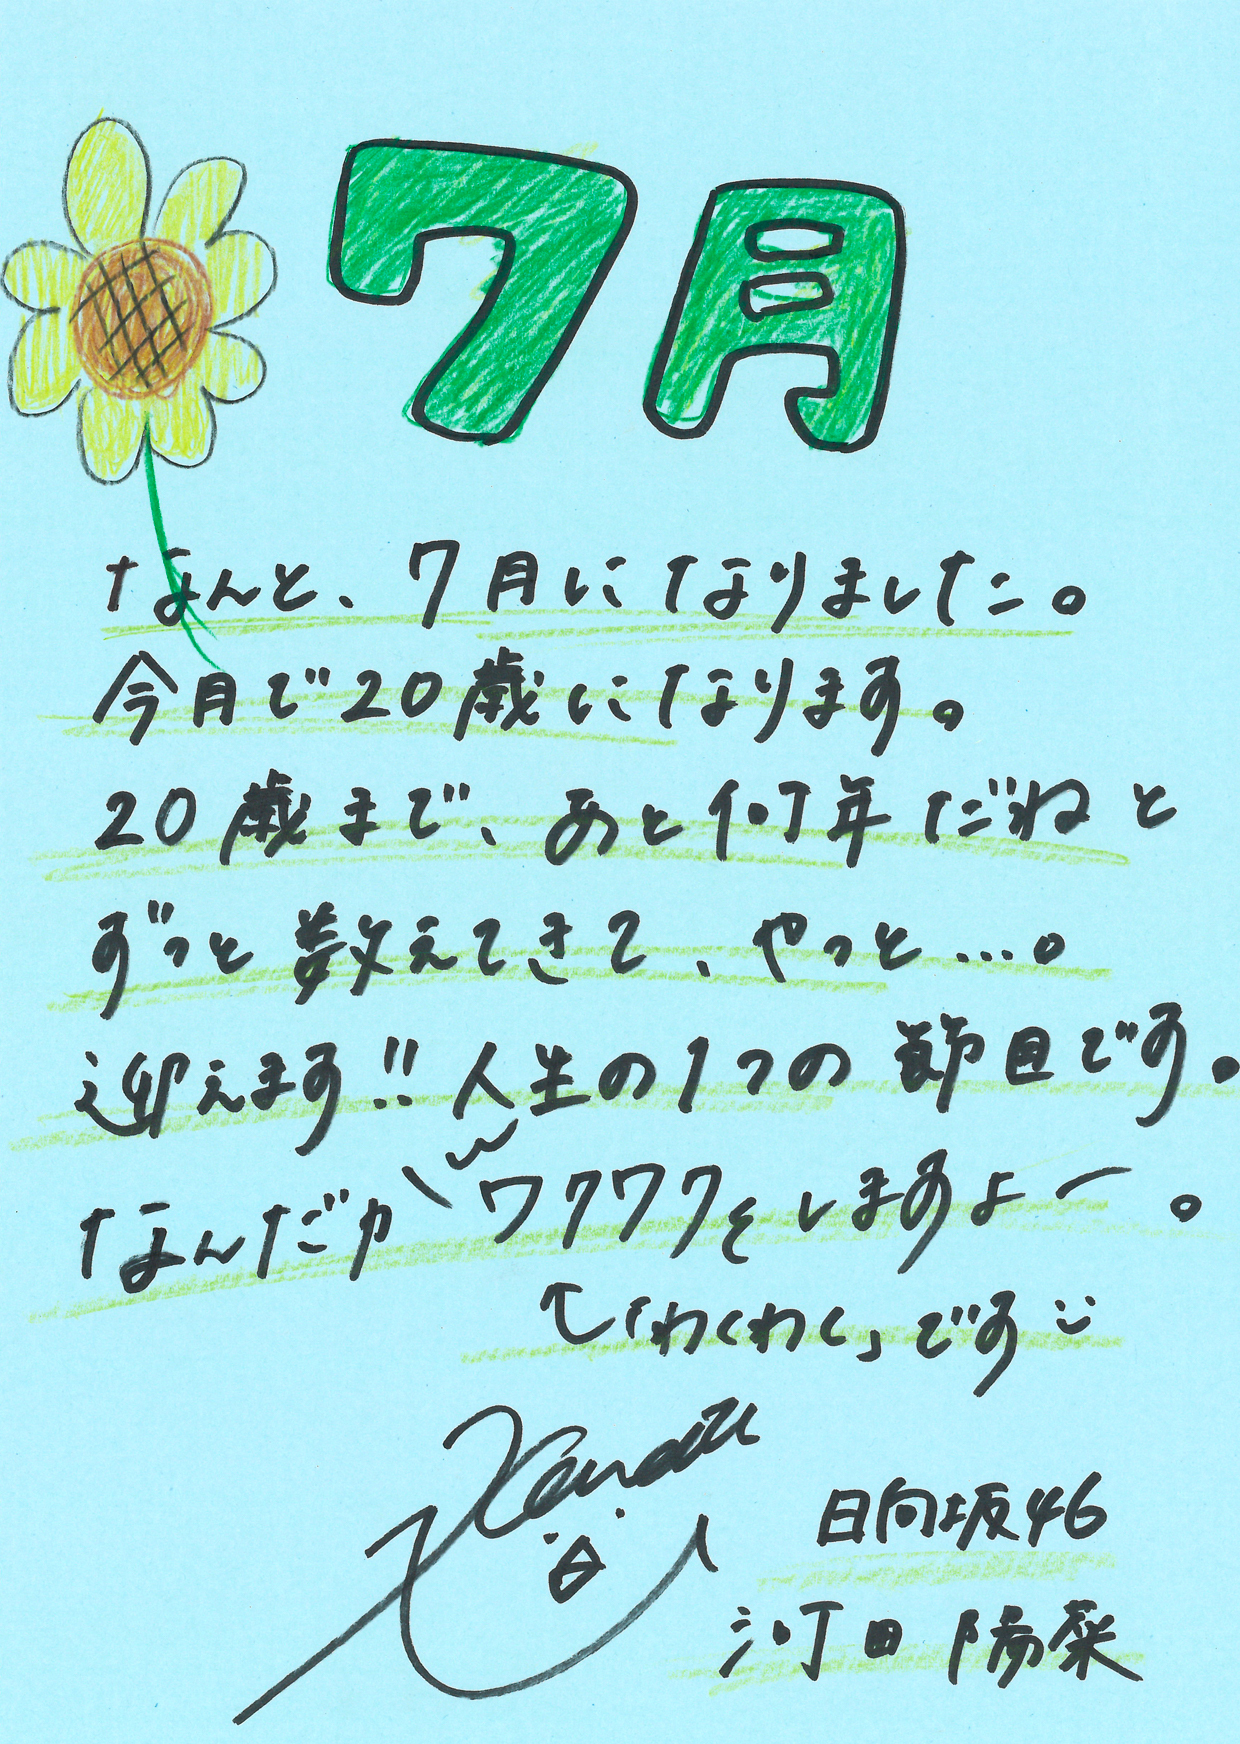 7月
なんと、7月になりました。
今月で20歳になります。
20歳まで、あと何年だねと
ずっと数えてきて、やっと...。
迎えます!!人生の1つの節目です。
なんだかワクワクをしますよー。
「わくわく」です
日向坂46
河田 陽菜